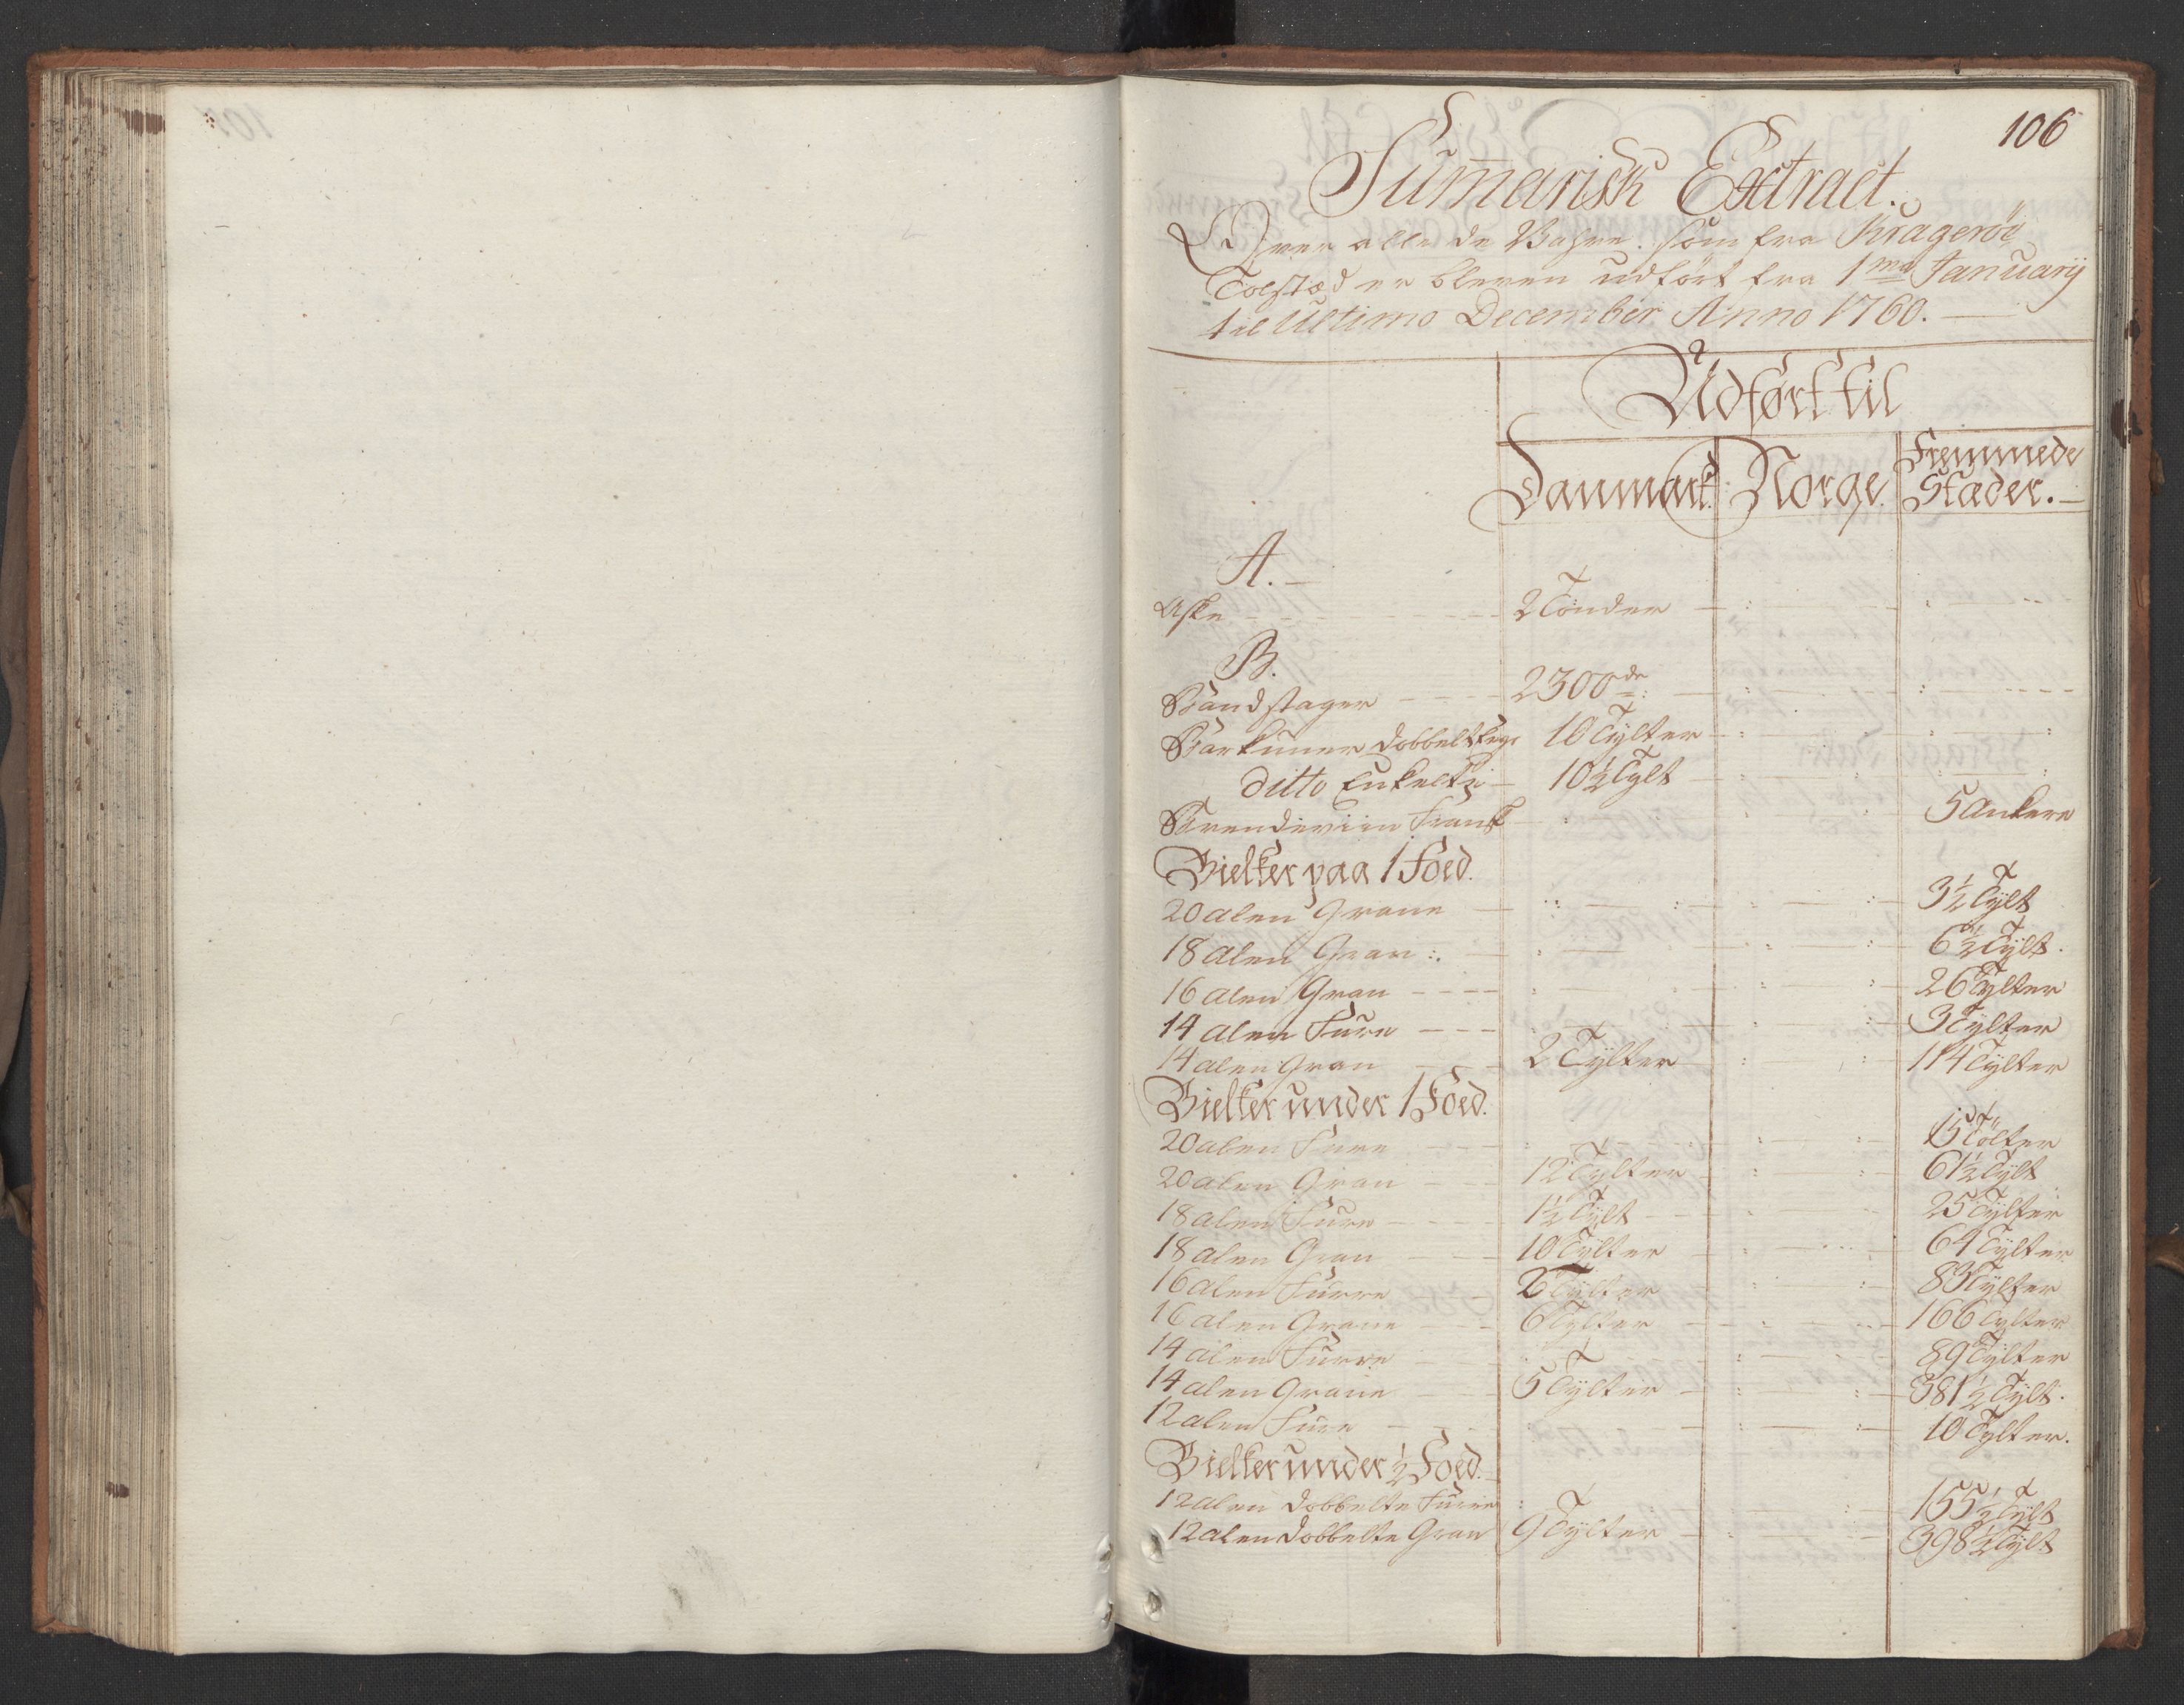 106
Sum̄arisk Extract.
Over alle de Vahre som fra Kragerøe
Tolsted er bleven udført fra 1ma January
til Ultimo December Anno 1760.
Udført til
Danmark Norge Fremmede Stæder.
A.
Aske 2 Tönder
B.
Baandstager 2300de
Barkuner dobbelt 10 Tÿlter
ditto Enkelt 10½ Tylt
Brendeviin Fransk 5 Ankere
Bielker paa 1 Foed.
20 alen Grane 3½ Tylt
18 alen Gran 6½ Tylt.
16 alen Gran 26 Tylter
14 alen Fure 3 Tylter
14 alen Gran 2 Tylter 114 Tylter
Bielker under 1 Foed.
20 alen Fure 15 Tölter
20 alen Gran 12 Tylter 61½ Tylt
18 alen Fure 1½ Tylt 25 Tylter
18 alen Gran 10 Tylter 64 Tylter
16 alen Furre 2 Tylter 83 Tylter
16 alen Grane 6 Tylter 166 Tylter
14 alen Furre 89 Tylter
14 alen Grane 5 Tylter 381½ Tylt.
12 alen Fure 10 Tylter.
Bielker under ½ Foed.
12 alen dobbelte Furre 155½ Tylt
12 alen dobbelte Gran 9 Tylter 398½ Tylt